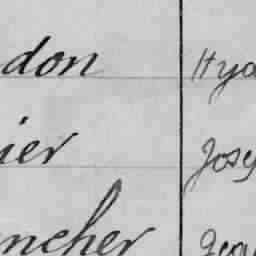 don Hya
ier Josy
ncher